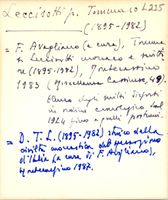 Leccisotti p. Tommaso L225
(1895-1982)
= F. Avagliano (a cura), Tomma
so Leccisotti monaco e studio
so (1895-1982), Montecassino
1983 (Miscellanea Cassinese, 48)
Elenco degli scritti disposti
in ordine cronologico dal
1924 sino a quelli postumi.
= D. T. L. (1895-1982) storico della
civiltà monastica del mezzogiorno
d'Italia (a cura di F. Avagliano),
1987.